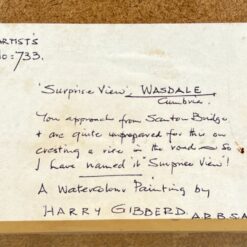 ARTIST'S
No: 733.
'Surprise View', WASDALE
Cumbria.
You approach from Santon Bridge
& are quite unprepared for this on
cresting a rise in the road — So
I have named it "Surprise View"!
A Watercolour Painting by
HARRY GIBBERD A.D.B.S.A